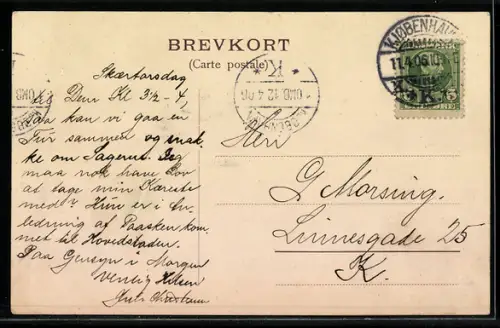 BREVKORT
(Carte postale)
KJØBENHAVN
11.4.06.10
K. K
K
OMB. 12 4 06
KJØBENHAVN
OMB
5
Skærtorsdag
Dem Kl 3½ - 4,
saa kan vi gaa en
Tur sammen og snak-
ke om Sagerne. Jeg
maa nok have Lov
at tage min Kæreste
med? Hun er i An-
ledning af Paasken kom-
met til Hovedstaden.
Paa Gensyn i Morgen
Venlig Hilsen
Herr
Morsing.
Linnesgade 25
K.